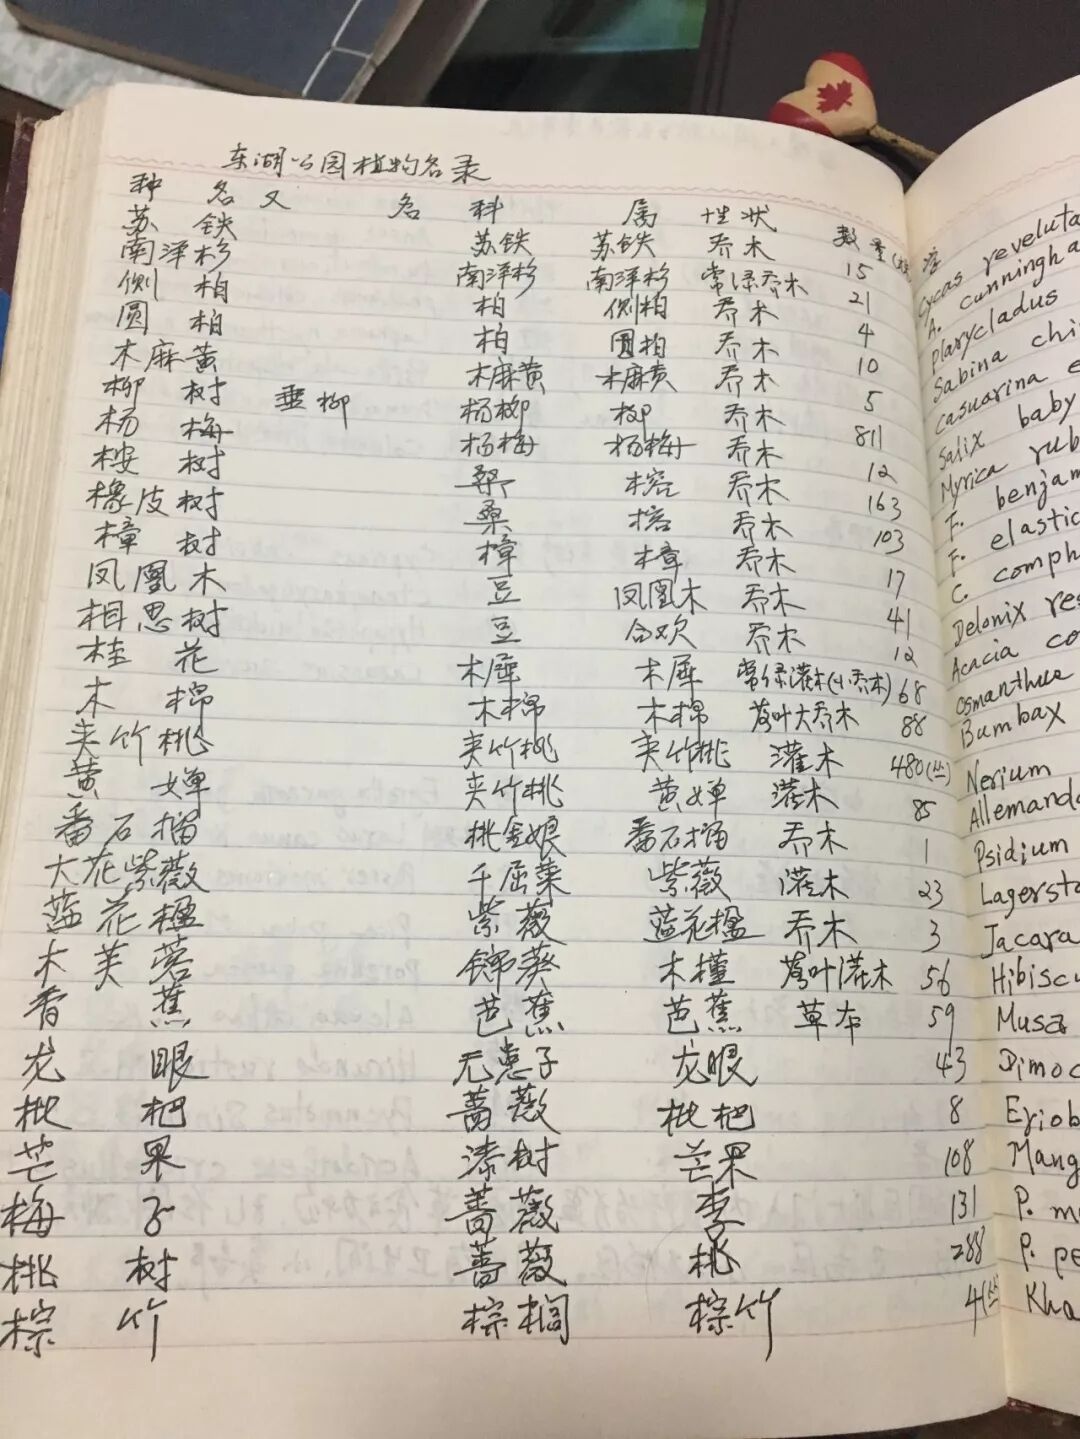 东湖公园植物名录
种 名 又 名 科 属 性状 数量(株)
苏 铁 苏铁 苏铁 乔木 15 Cycas reveluta
南洋杉 南洋杉 南洋杉 常绿乔木 21 A. cunningha
侧 柏 柏 侧柏 乔木 4 plarycladus
圆 柏 柏 圆柏 乔木 10 Sabina chi
木麻黄 木麻黄 木麻黄 乔木 5 casuarina e
柳 树 垂柳 杨柳 柳 乔木 811 Salix baby
杨 梅 杨梅 杨梅 乔木 12 Myrica rub
桉 树 桑 榕 乔木 163 F. benjam
橡皮树 桑 榕 乔木 103 F. elastic
樟 树 樟 樟 乔木 17 C. comph
凤凰木 豆 凤凰木 乔木 41 Delonix re
相思树 豆 合欢 乔木 12 Acacia co
桂 花 木犀 木犀 常绿灌木(小乔木) 68 Osmanthue
木 棉 木棉 木棉 落叶大乔木 88 Bumbax
夹竹桃 夹竹桃 夹竹桃 灌木 480(丛) Nerium
黄 婵 夹竹桃 黄婵 灌木 85 Allemanda
番石榴 桃金娘 番石榴 乔木 1 Psidium
大花紫薇 千屈菜 紫薇 灌木 23 Lagersto
蓝花楹 紫薇 蓝花楹 乔木 3 Jacara
木芙蓉 锦葵 木槿 落叶灌木 56 Hibiscu
香 蕉 芭蕉 芭蕉 草本 59 Musa
龙 眼 无患子 龙眼 43 Dimoc
枇 杷 蔷薇 枇杷 8 Eriob
芒 果 漆树 芒果 108 Mang
梅 子 蔷薇 李 131 P. m
桃 树 蔷薇 桃 288 P. pe
棕 竹 棕榈 棕竹 4(丛) Kha